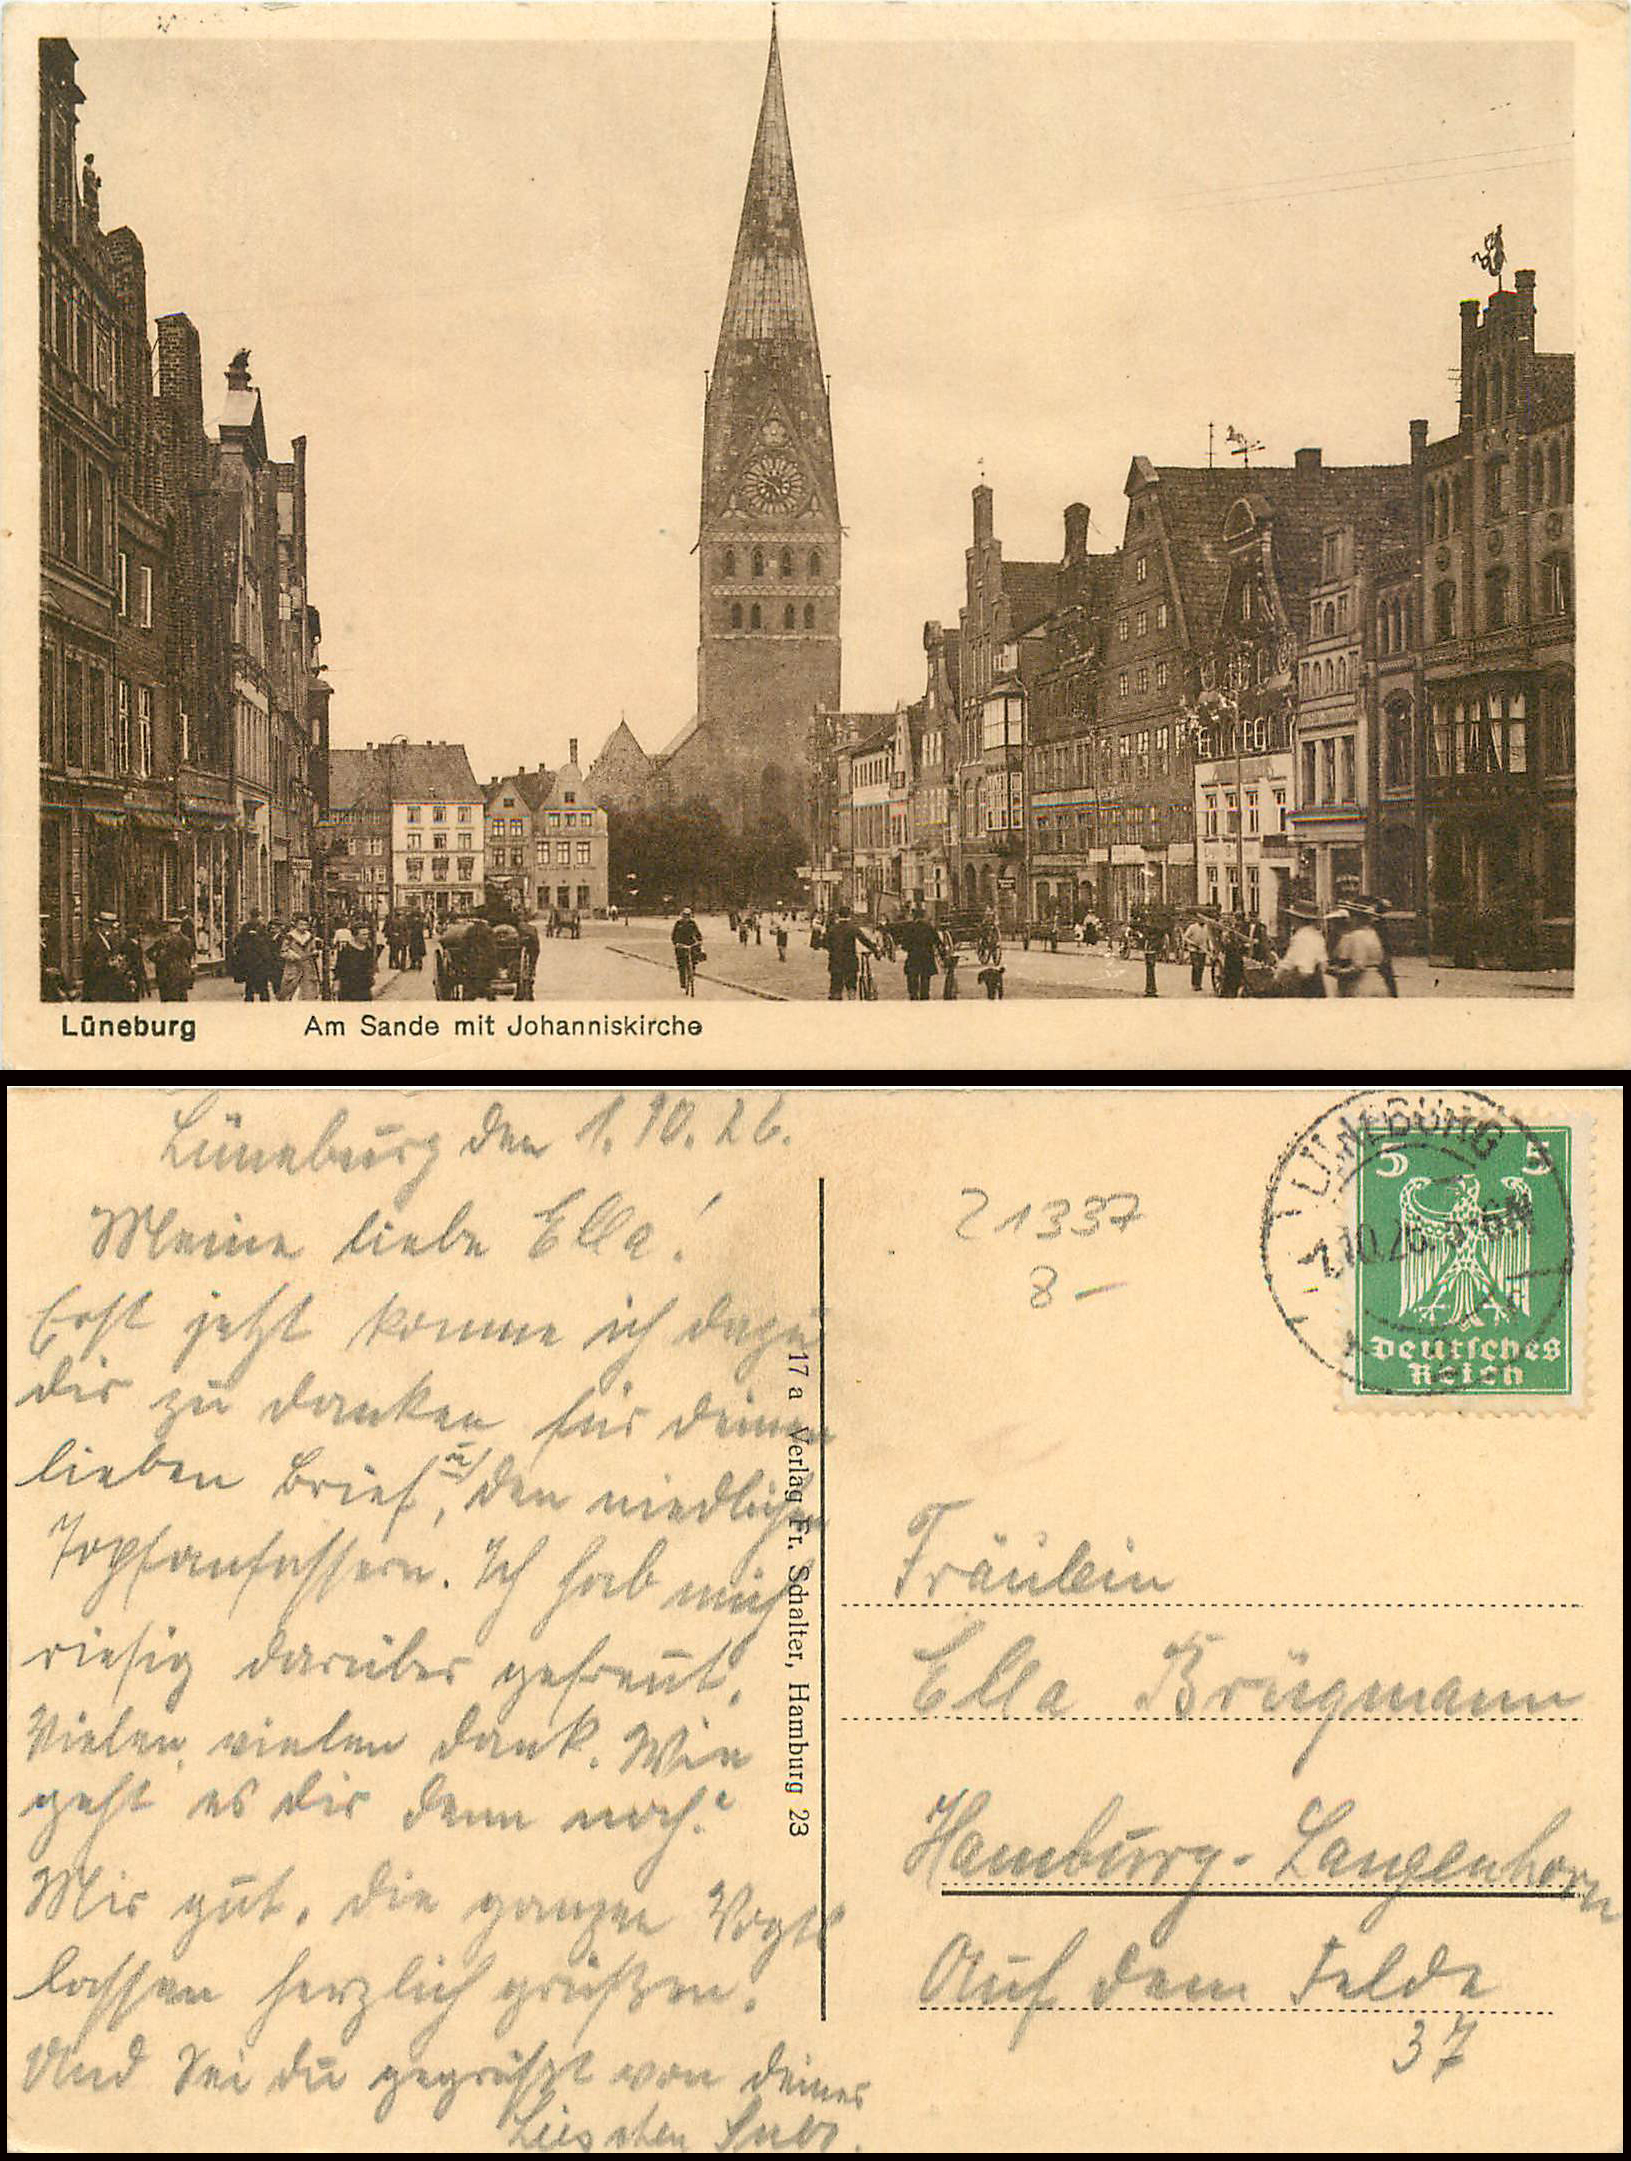 Lüneburg Am Sande mit Johanniskirche
Lüneburg den 1. 10. 26.
Meine liebe Ella!
Erst jetzt komme ich dazu
dir zu danken für deinen
lieben Brief, u. den niedlichen
Topfanfassern. Ich hab mich
riesig darüber gefreut.
Vielen, vielen Dank. Wie
geht es dir denn noch?
Mir gut. Die ganzen Vogts
lassen herzlich grüßen.
Und Sei du gegrüßt von deiner
Lieschen
17 a Verlag Fr. Schalter, Hamburg 23
21337
8 –
LÜNEBURG
5 5
Deutsches
Reich
Fräulein
Ella Brügmann
Hamburg-Langenhorn
Auf dem Felde
37